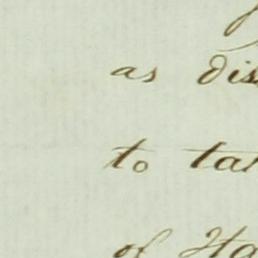 as dis
to tar
of Ha